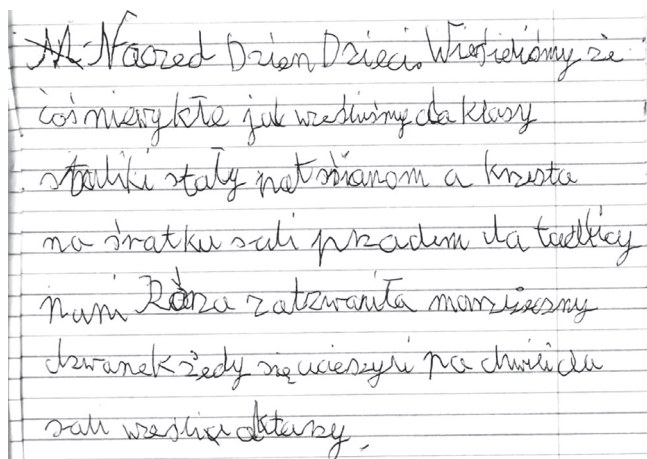 Nadszed Dzien Dzieci. Wiesieliśmy że
coś niewykłe jak wześliśmy da klasy
staliki stały pot ścianom a krzesła
na śratku sali przadem da tablicy
pani Róża zatzwaniła
dzwanek żedy się ucieszyli pa chwili da
sali weśli aktarzy.